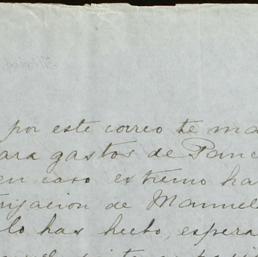 por este correo te ma
ara gastos de Panc
en caso extremo ha
rizacion de Manuel
lo has hecho, espera